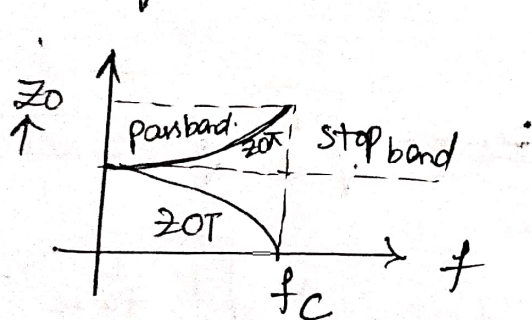 Z0
passband.
Z0π
stop band
Z0T
f
fc